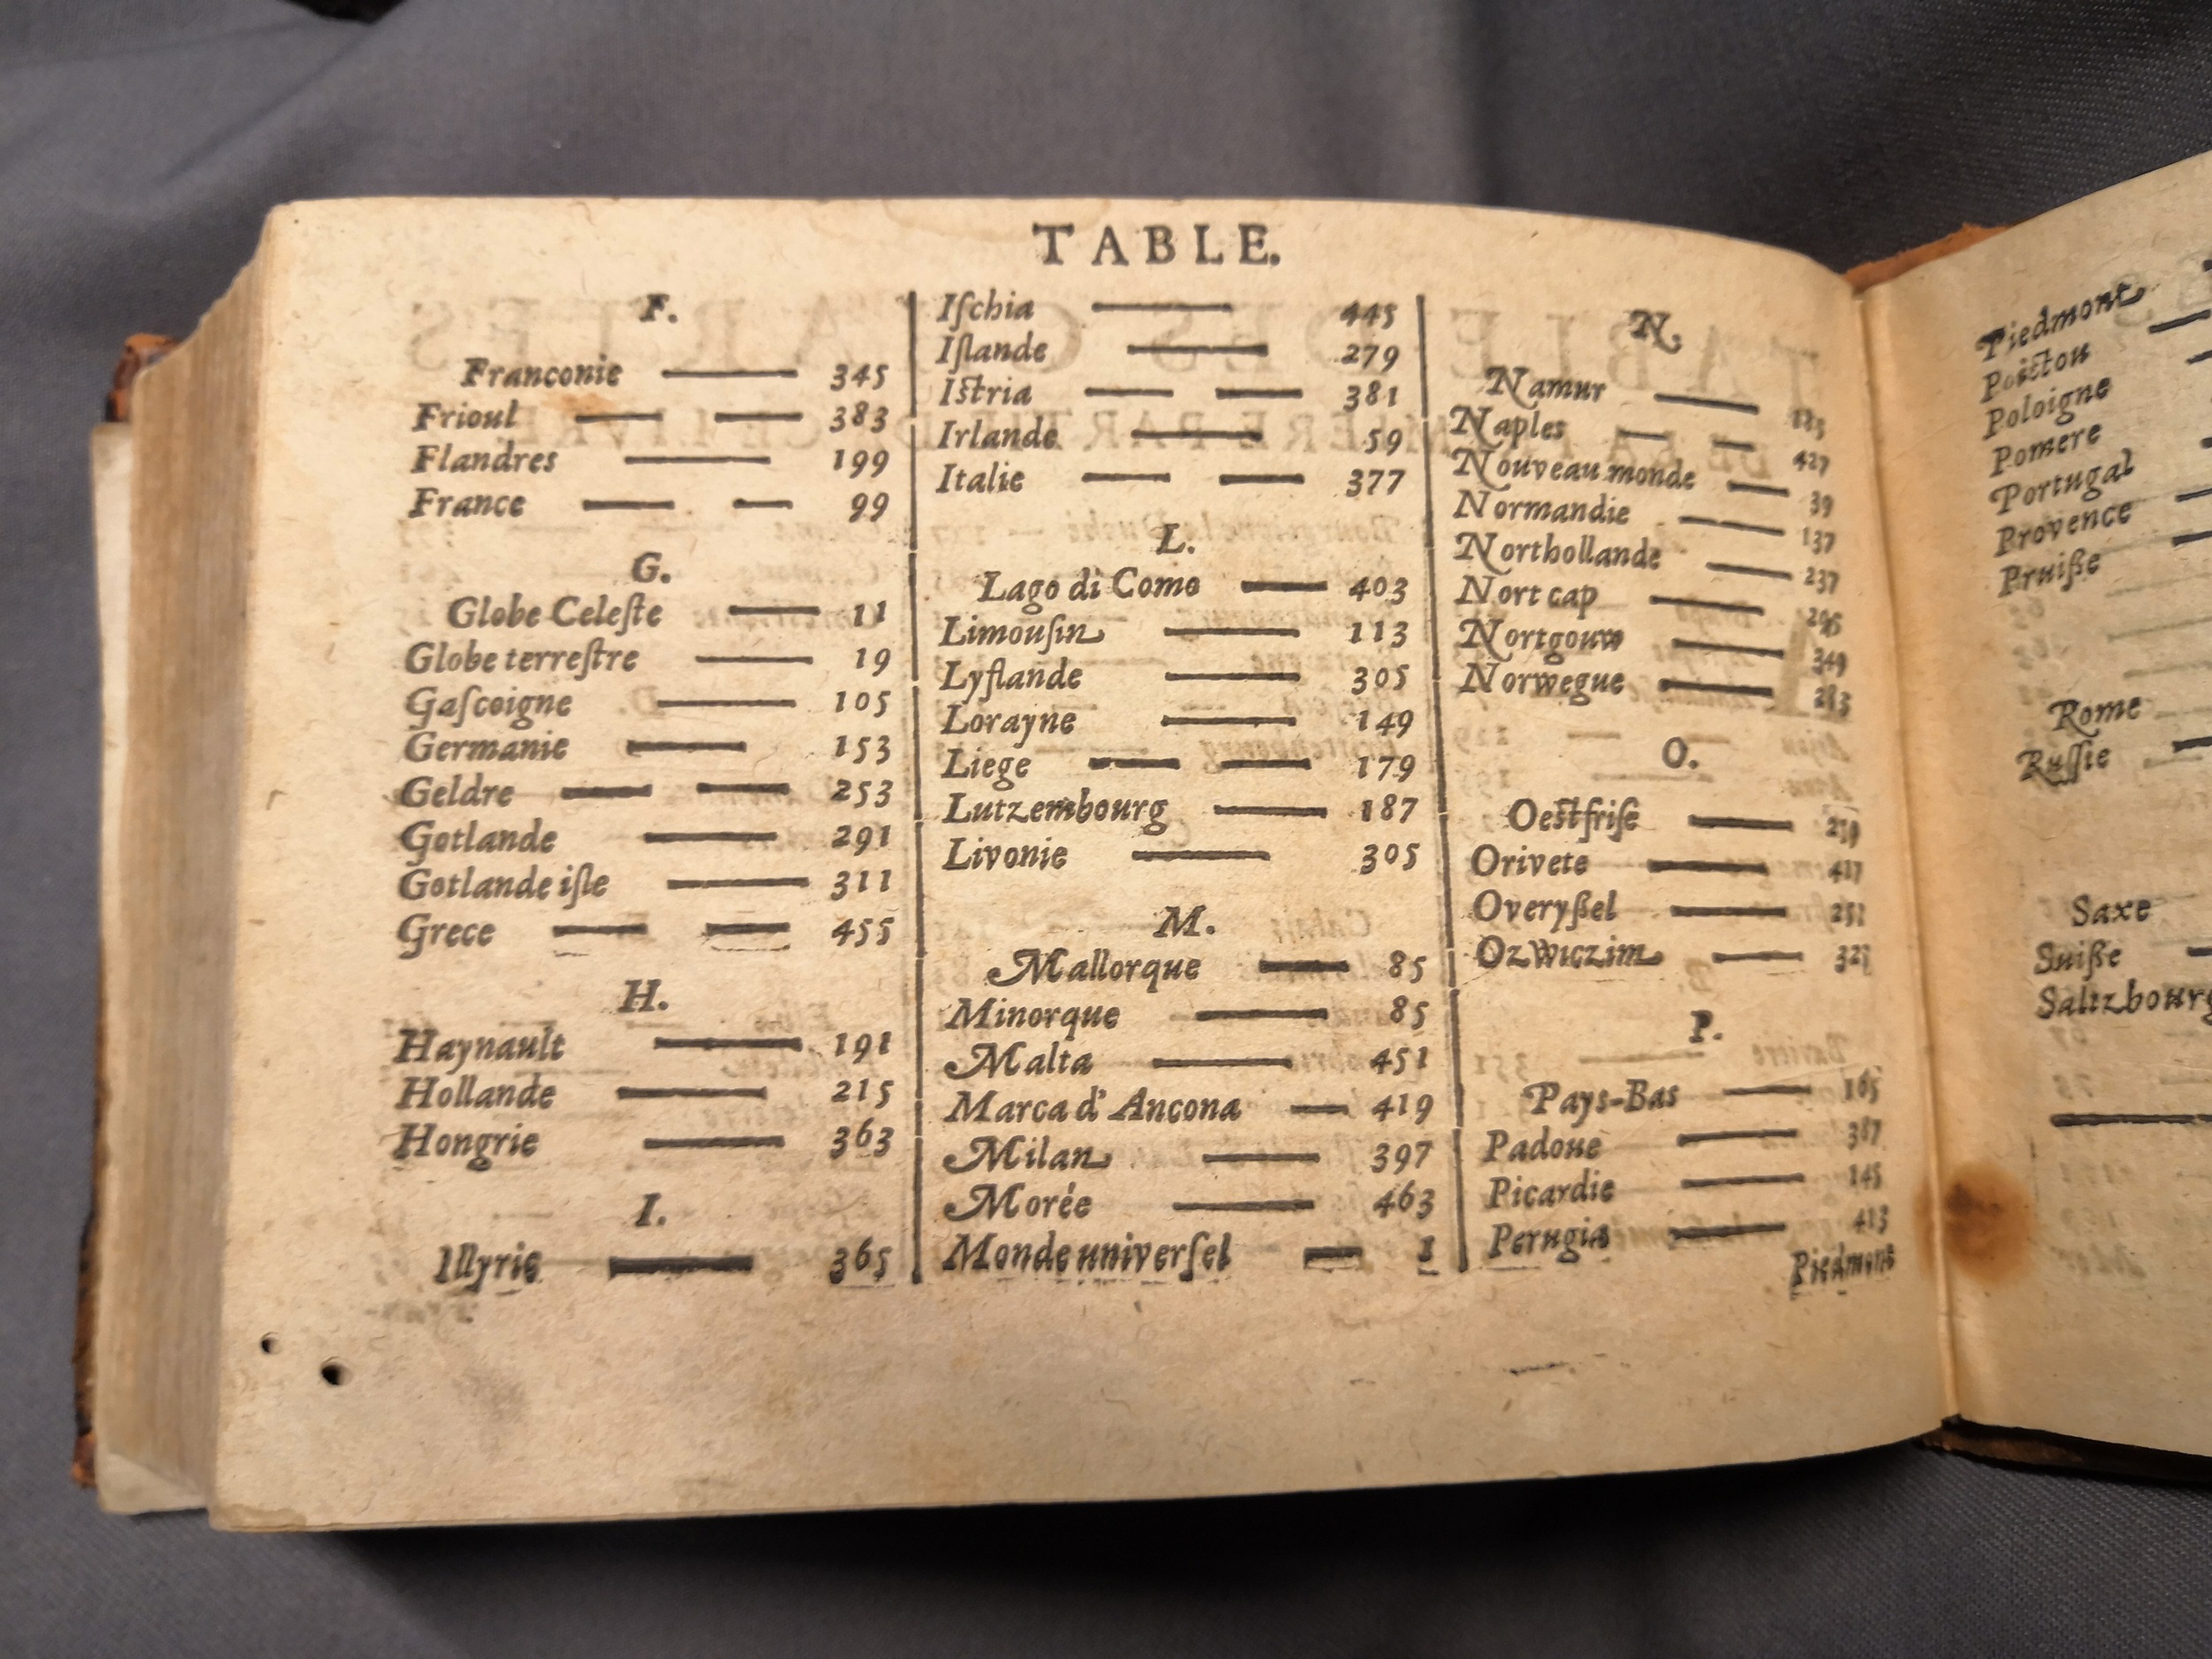 TABLE.
F.
Franconie 345
Frioul 383
Flandres 199
France 99
G.
Globe Celeſte 11
Globe terreſtre 19
Gaſcoigne 105
Germanie 153
Geldre 253
Gotlande 291
Gotlande iſle 311
Grece 455
H.
Haynault 191
Hollande 215
Hongrie 363
I.
Illyrie 365
Iſchia 445
Iſlande 279
Iſtria 381
Irlande 59
Italie 377
L.
Lago di Como 403
Limouſin 113
Lyflande 305
Lorayne 149
Liege 179
Lutzembourg 187
Livonie 305
M.
Mallorque 85
Minorque 85
Malta 451
Marca d' Ancona 419
Milan 397
Morée 463
Monde univerſel 1
N.
Namur
Naples 427
Nouveau monde 39
Normandie 137
Northollande 237
Nort cap
Nortgouw 349
Norwegue 283
O.
Oeſtfriſe
Orivete 417
Overyßel
Ozwiczim
P.
Pays-Bas 165
Padoue 387
Picardie 145
Perugia 413
Piedmont
Piedmont
Poictou
Poloigne
Pomere
Portugal
Provence
Pruiße
Rome
Ruſſie
Saxe
Suiße
Saltzbourg